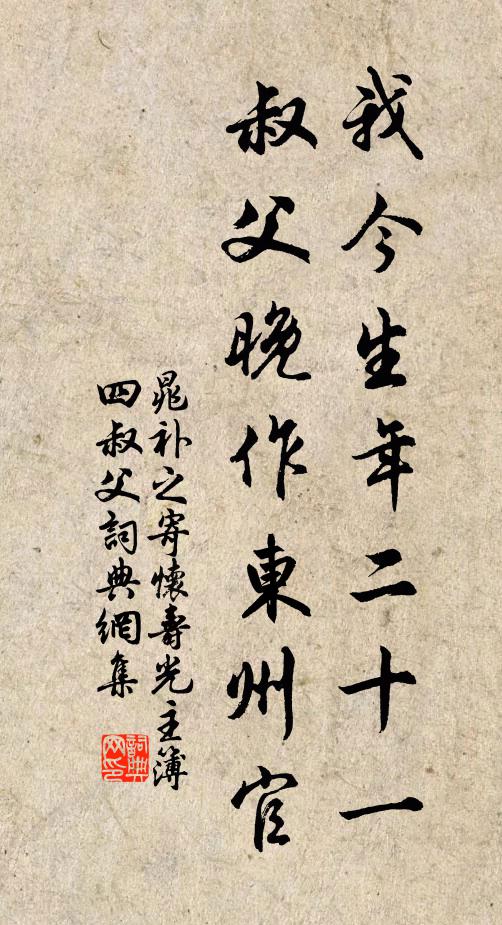 我今生年二十一
叔父晚作東州官
晁补之寄懷壽光主簿
四叔父詞典網集
詞典网印